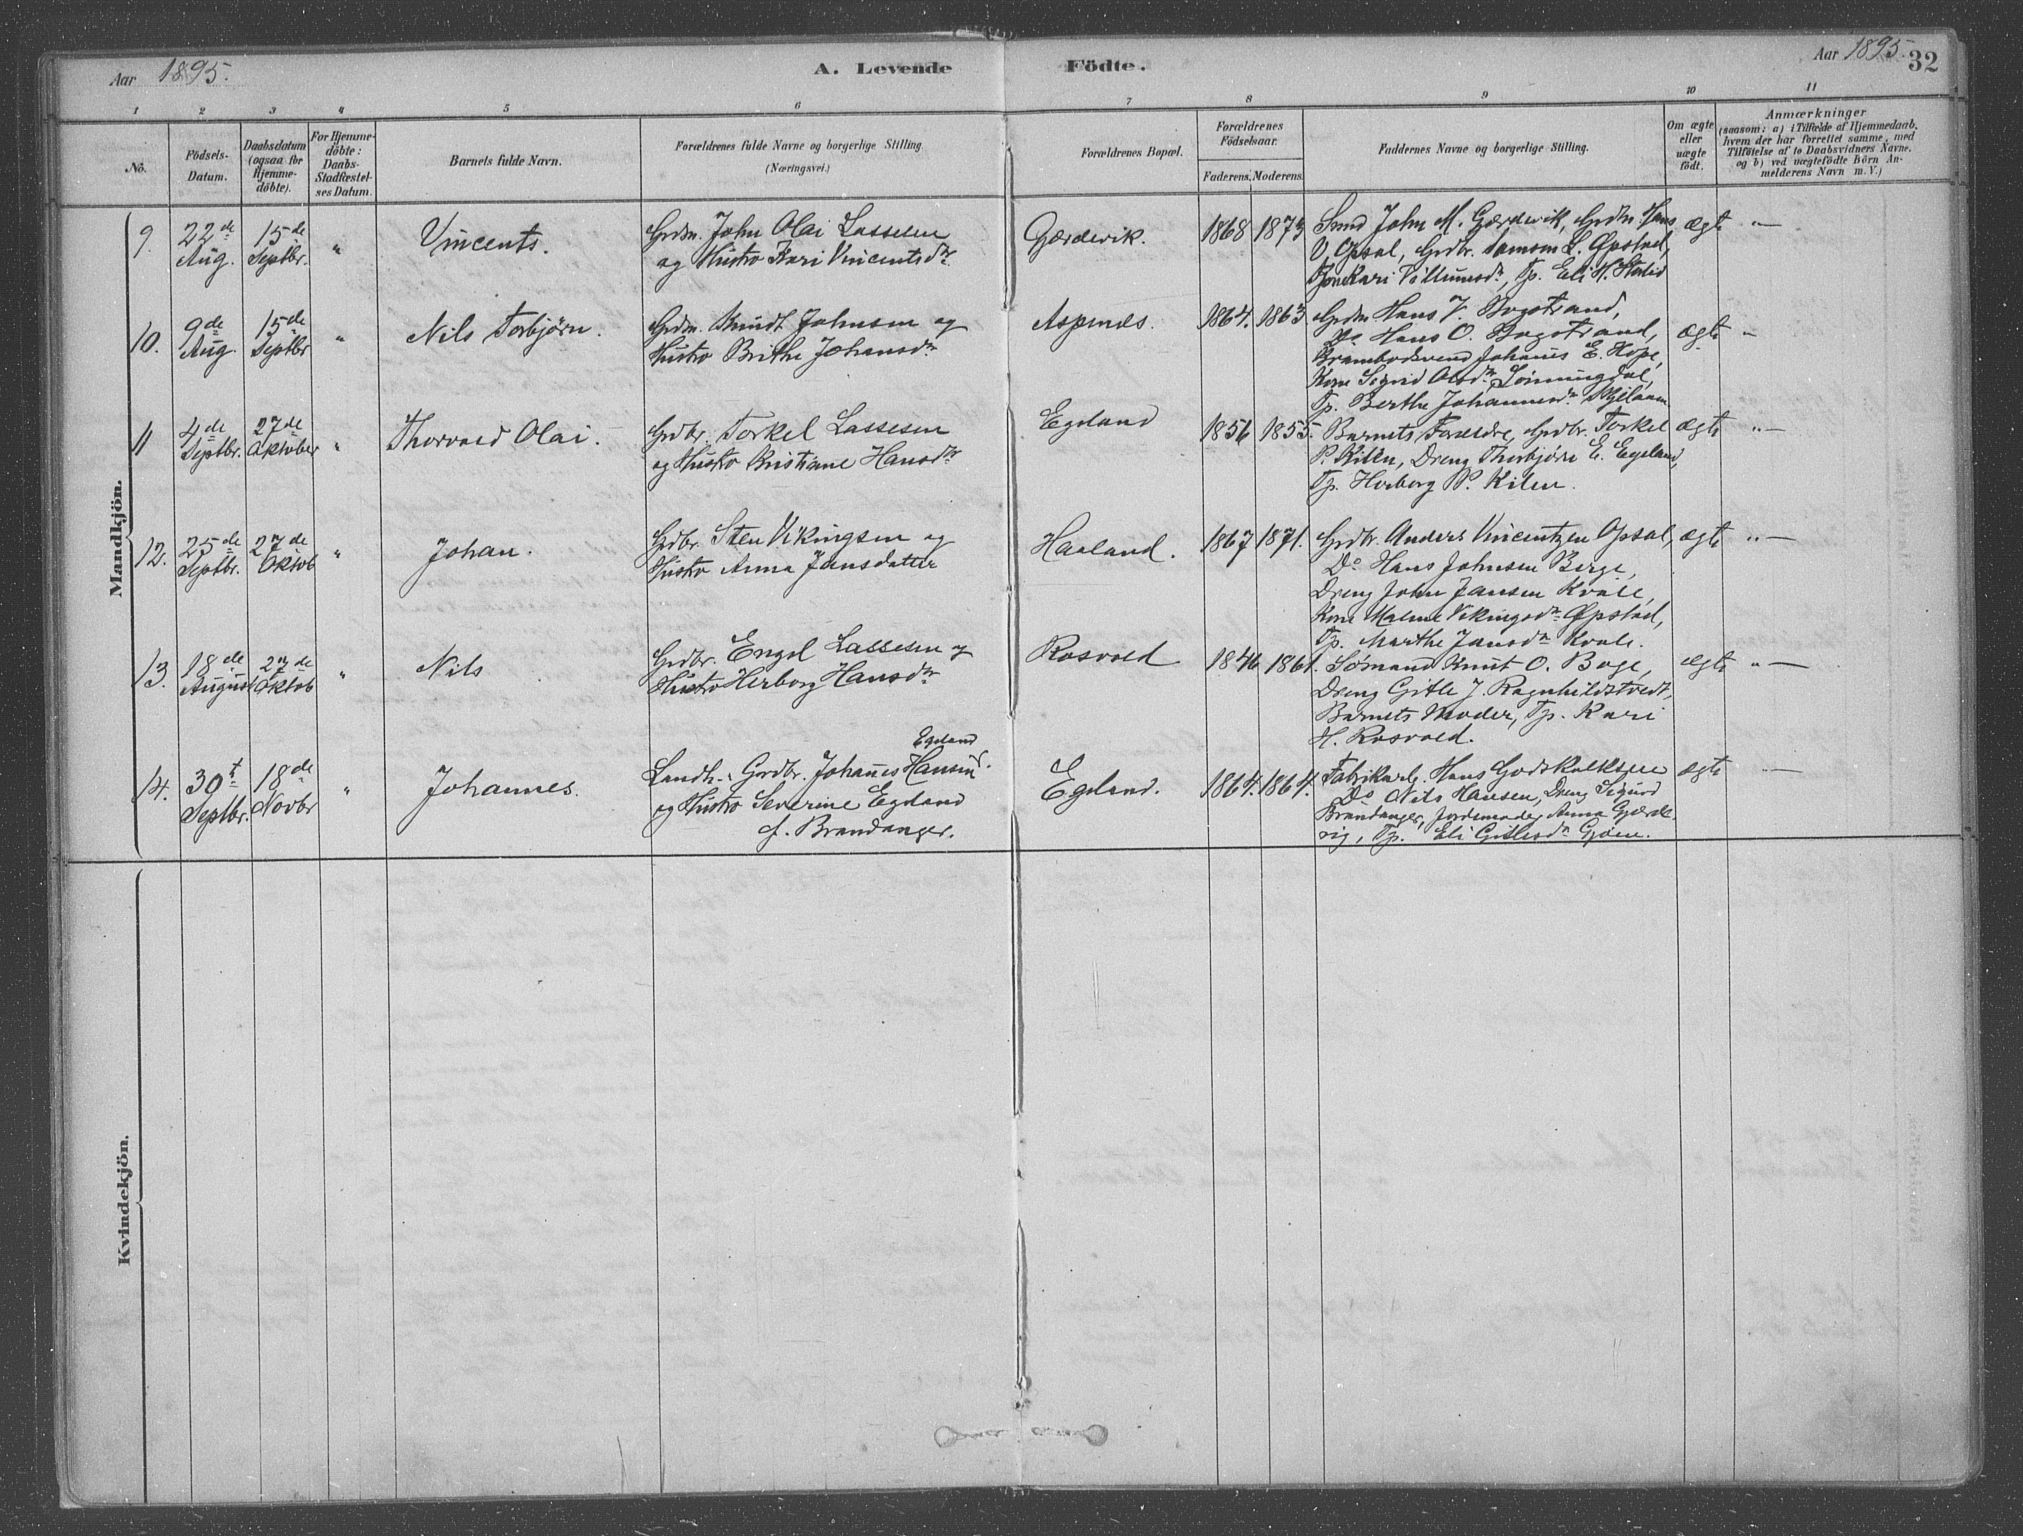 Aar 1895.
A. Levende Födte.
Aar 1895. 32
1 2 3 4 5 6 7 8 9 10 11
No.
Födsels-
Datum.
Daabsdatum
(ogsaa for
Hjemme-
döbte).
For Hjemme-
döbte:
Daabs-
Stadfæstel-
ses Datum.
Barnets fulde Navn.
Forældrenes fulde Navne og borgerlige Stilling.
(Næringsvei.)
Forældrenes Bopæl.
Forældrenes
Födselsaar.
Faderens. Moderens.
Faddernes Navne og borgerlige Stilling.
Om ægte
eller
uægte
födt.
Anmærkninger
(saasom: a) i Tilfælde af Hjemmedaab,
hvem der har forrettet samme, med
Tilföielse af to Daabsvidners Navne,
og b) ved uægtefödte Börn An-
melderens Navn m. V.)
Mandkjön.
9. 22de Aug. 15de Septbr. " Vincents.
Grdm. John Olai Lassesen
og Hustro Kari Vincentsdr
Gærdevik. 1868 1873
Smed John M. Gærdevik, Grdm. Hans
V. Opsal, Grdbr. Samson L. Øpstad,
Kari Villumsdr, Tp. Eli H.
ægte "—
10. 9de Aug. 15de Septbr " Nils Torbjörn.
Grdm. Knudt Johnsen og
Hustro Brithe Johansdr
Aspenæs. 1864. 1863
Grdm Hans V. Bogstrand,
Do Hans O. Bogstrand,
Krambodsvend Johanes E. Hope,
Kone Sigrid Olsdr Lönningdal,
Tp. Berthe Johannesdr
ægte "
11 4de Septbr. 27de Oktober " Thorvald Olai.
Grdbr. Torkel Lassesen
og Hustro Kristiane Hansdtr
Egeland 1856 1855.
Barnets Forældre, Grdbr. Torkel
P. Kilen, Dreng Thorbjörn E. Egeland,
Tp. Herborg P. Kilen.
ægte "—
12. 25de Septbr. 27de Oktob " Johan.
Grdbr. Sten Vikingsen og
Hustro Anna Jansdatter
Haaland. 1867 1871.
Grdbr. Anders Vincentzen Opsal,
Do Hans Johnsen Berge,
Dreng John Jansen Kvale,
Kone Malene Vikingsdr Øpstad,
Tp. Marthe Jansdr Kvale.
ægte "—
13. 18de August 27de Oktob " Nils
Grdbr. Engel Lassesen og
Hustro Herborg Hansdtr
Rosvold 1846 1861.
Sømand Knut O. Boge,
Dreng Gitle J. Ragnhildstvedt,
Barnets Moder, Tp. Kari
H. Rosvold.
ægte "—
14. 30t Septbr. 18de Novbr " Johannes.
Egeland
Landh. Grdbr. Johanes Hansen
og Hustro Severine Egeland
f. Brandanger.
Egeland. 1864. 1864.
Fabrikarb. Hans Godskalksen
Do Nils Hansen, Dreng Sigurd
Brandanger, Jordemoder Anna Gjærde-
vig, Tp. Eli Gitlesdr Gjöen.
ægte "—
Kvindekjön.